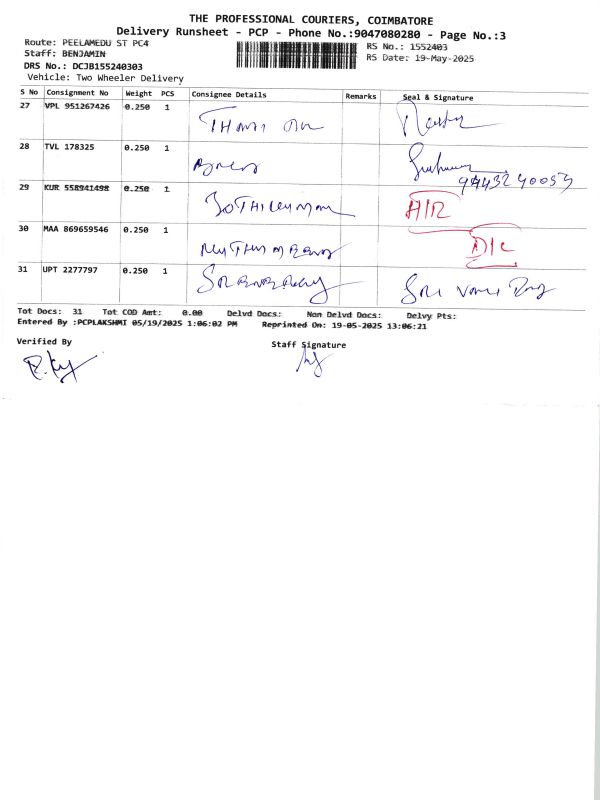 THE PROFESSIONAL COURIERS, COIMBATORE
Delivery Runsheet - PCP - Phone No.:9047080280 - Page No.:3
Route: PEELAMEDU ST PC4
Staff: BENJAMIN
RS No.: 1552403
RS Date: 19-May-2025
DRS No.: DCJB155240303
Vehicle: Two Wheeler Delivery
S No Consignment No Weight PCS Consignee Details Remarks Seal & Signature
27 VPL 951267426 0.250 1
28 TVL 178325 0.250 1
9443240053
29 KUR 558941498 0.250 1 A/R
30 MAA 869659546 0.250 1 D/C
31 UPT 2277797 0.250 1
Tot Docs: 31 Tot COD Amt: 0.00 Delvd Docs: Non Delvd Docs: Delvy Pts:
Entered By :PCPLAKSHMI 05/19/2025 1:06:02 PM Reprinted On: 19-05-2025 13:06:21
Verified By
Staff Signature